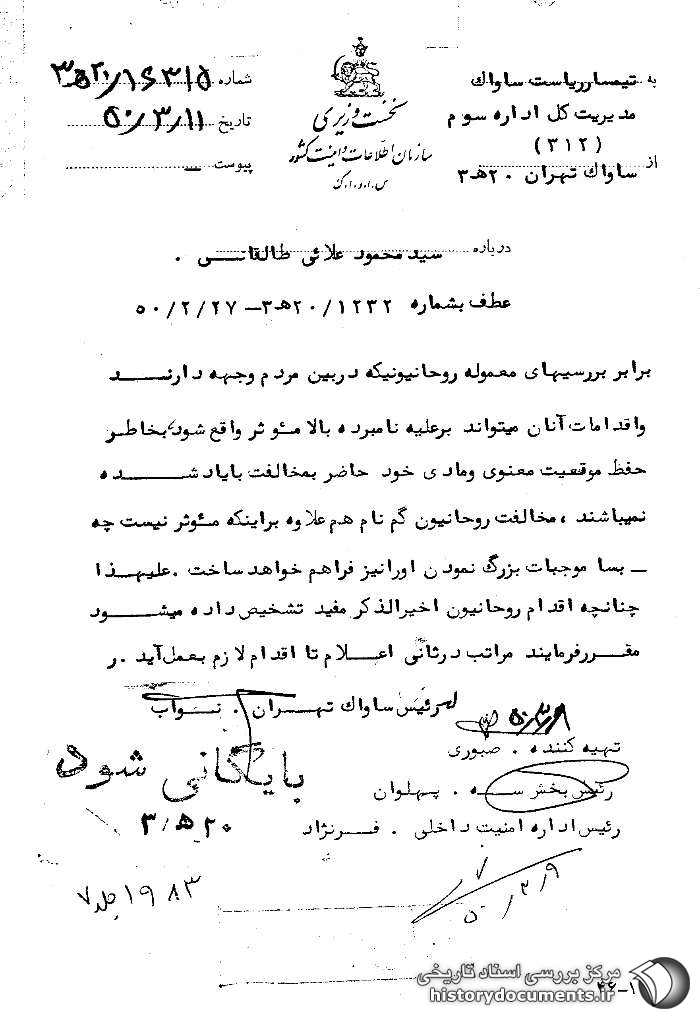 به تیمسار ریاست ساواک
مدیریت کل اداره سوم
(۳۱۲)
از ساواک تهران ۲۰هـ۳
نخست وزیری
سازمان اطلاعات و امنیت کشور
س.ا.و.ا.ک
شماره
تاریخ ۵۰/۳/۱۱
پیوست —
درباره سید محمود علائی طالقانی .
عطف بشماره ۱۲۳۲/ ۲۰هـ۳– ۵۰/۲/۲۷
برابر بررسیهای معموله روحانیونیکه دربین مردم وجهه دارند
واقدامات آنان میتواند برعلیه نامبرده بالا مئوثر واقع شود بخاطر
حفظ موقعیت معنوی ومادی خود حاضر بمخالفت بایاد شده
نمیباشند ، مخالفت روحانیون گم نام هم علاوه براینکه مئوثر نیست چه
– بسا موجبات بزرگ نمودن اورانیز فراهم خواهد ساخت . علیهذا
چنانچه اقدام روحانیون اخیرالذکر مفید تشخیص داده میشود
مقررفرمایند مراتب درثانی اعلام تا اقدام لازم بعمل آید . ر
رئیس ساواک تهران . نواب
تهیه کننده . صبوری
رئیس بخش سه . پهلوان
رئیس اداره امنیت داخلی . فرنژاد
بایگانی شود
۲۰هـ/۳
۵۰/۳/۹
۱۹۸۳ جلد ۷
مرکز بررسی اسناد تاریخی
historydocuments.ir